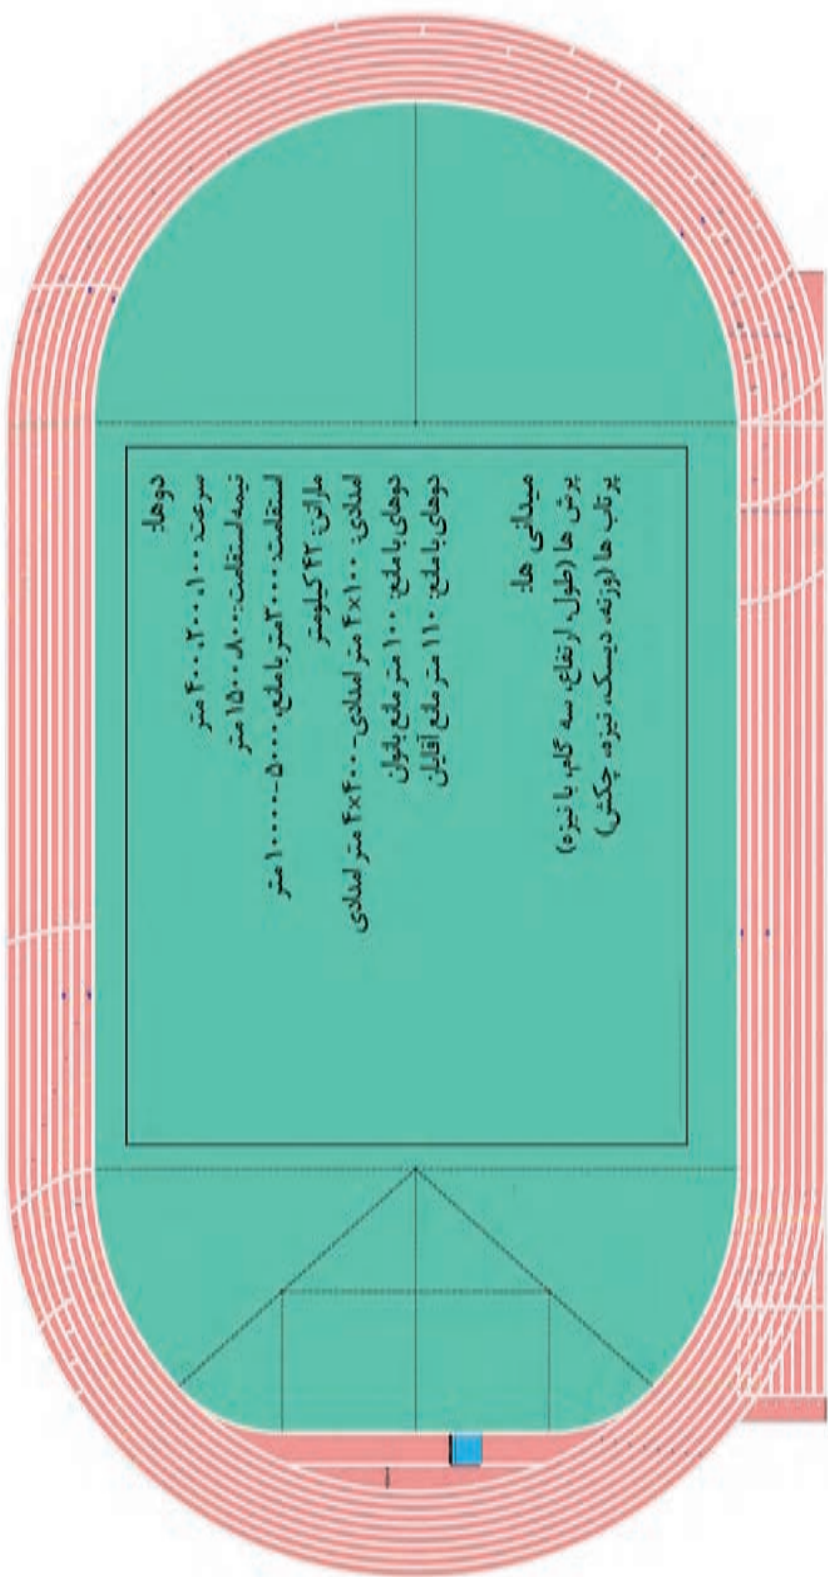 دوها:
سرعت: ۱۰۰، ۲۰۰، ۴۰۰ متر
نیمه استقامت: ۸۰۰، ۱۵۰۰ متر
استقامت: ۳۰۰۰ متر با مانع، ۵۰۰۰-۱۰۰۰۰ متر
ماراتن: ۴۲ کیلومتر
امدادی: ۴×۱۰۰ متر امدادی-۴×۴۰۰ متر امدادی
دوهای با مانع: ۱۰۰ متر مانع بانوان
دوهای با مانع: ۱۱۰ متر مانع آقایان
میدانی ها:
پرش ها (طول، ارتفاع، سه گام، با نیزه)
پرتاب ها (وزنه، دیسک، نیزه، چکش)